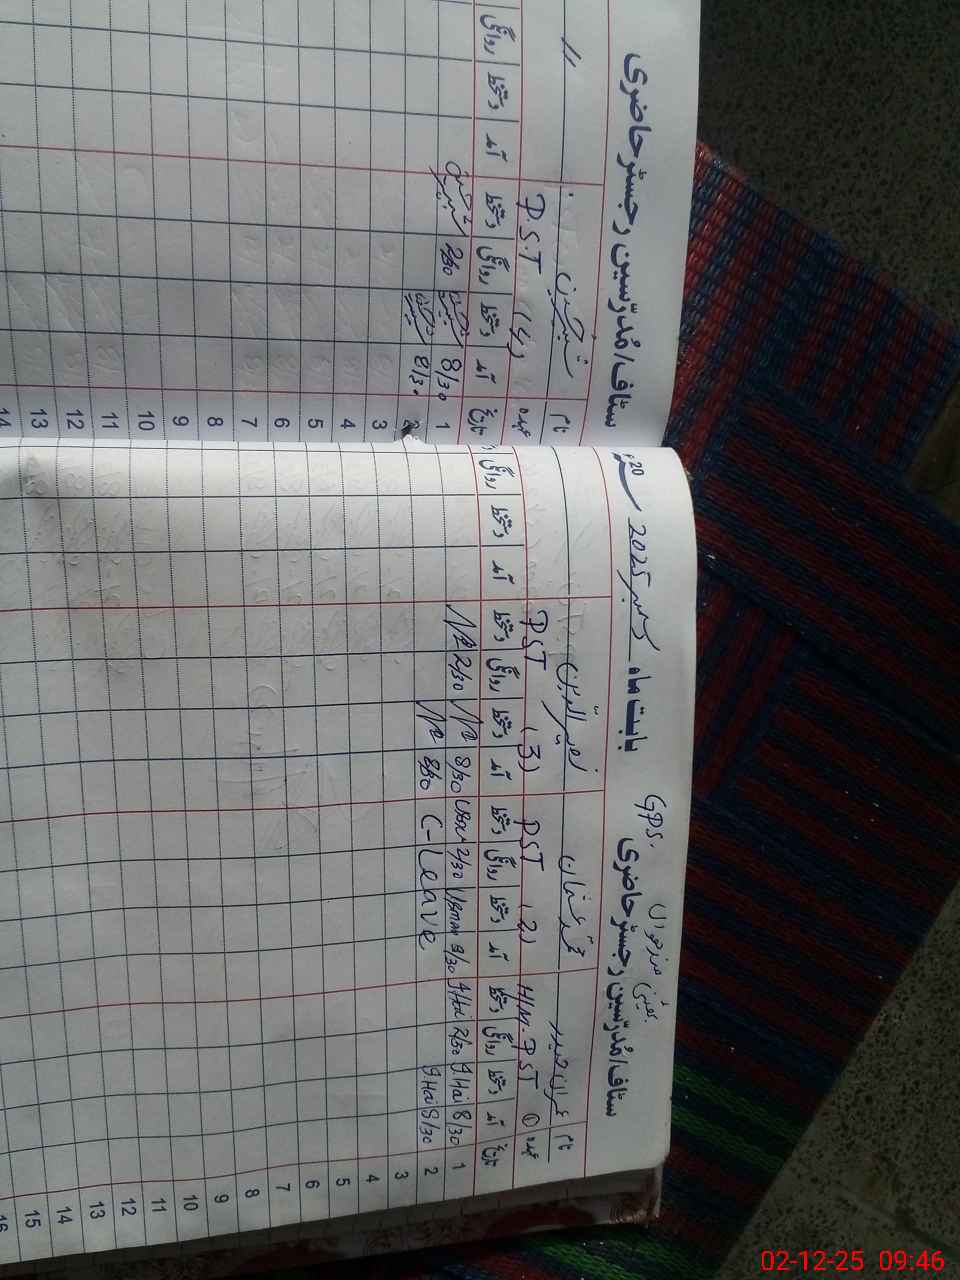 سٹاف/مُدرّسین رجسٹر حاضری
GPS.
بابت ماہ دسمبر 2025 20ء
نام عمران حیدر محمد عثمان نصیر الدین
عہدہ H/M. PST ① PST (2) PST (3)
تاریخ آمد دستخط روانگی دستخط آمد دستخط روانگی دستخط آمد دستخط روانگی دستخط آمد دستخط روانگی
1 8/30 2/30 8/30 2/30 8/30 2/30
2 8/30 C-Leave 8/30
3
4
5
6
7
8
9
10
11
12
13
14
15
16
سٹاف/مُدرّسین رجسٹر حاضری
نام
عہدہ (4) P.S.T
تاریخ آمد دستخط روانگی دستخط آمد دستخط روانگی
1 8/30 2/30
2 8/30
3
4
5
6
7
8
9
10
11
12
13
14
02-12-25 09:46